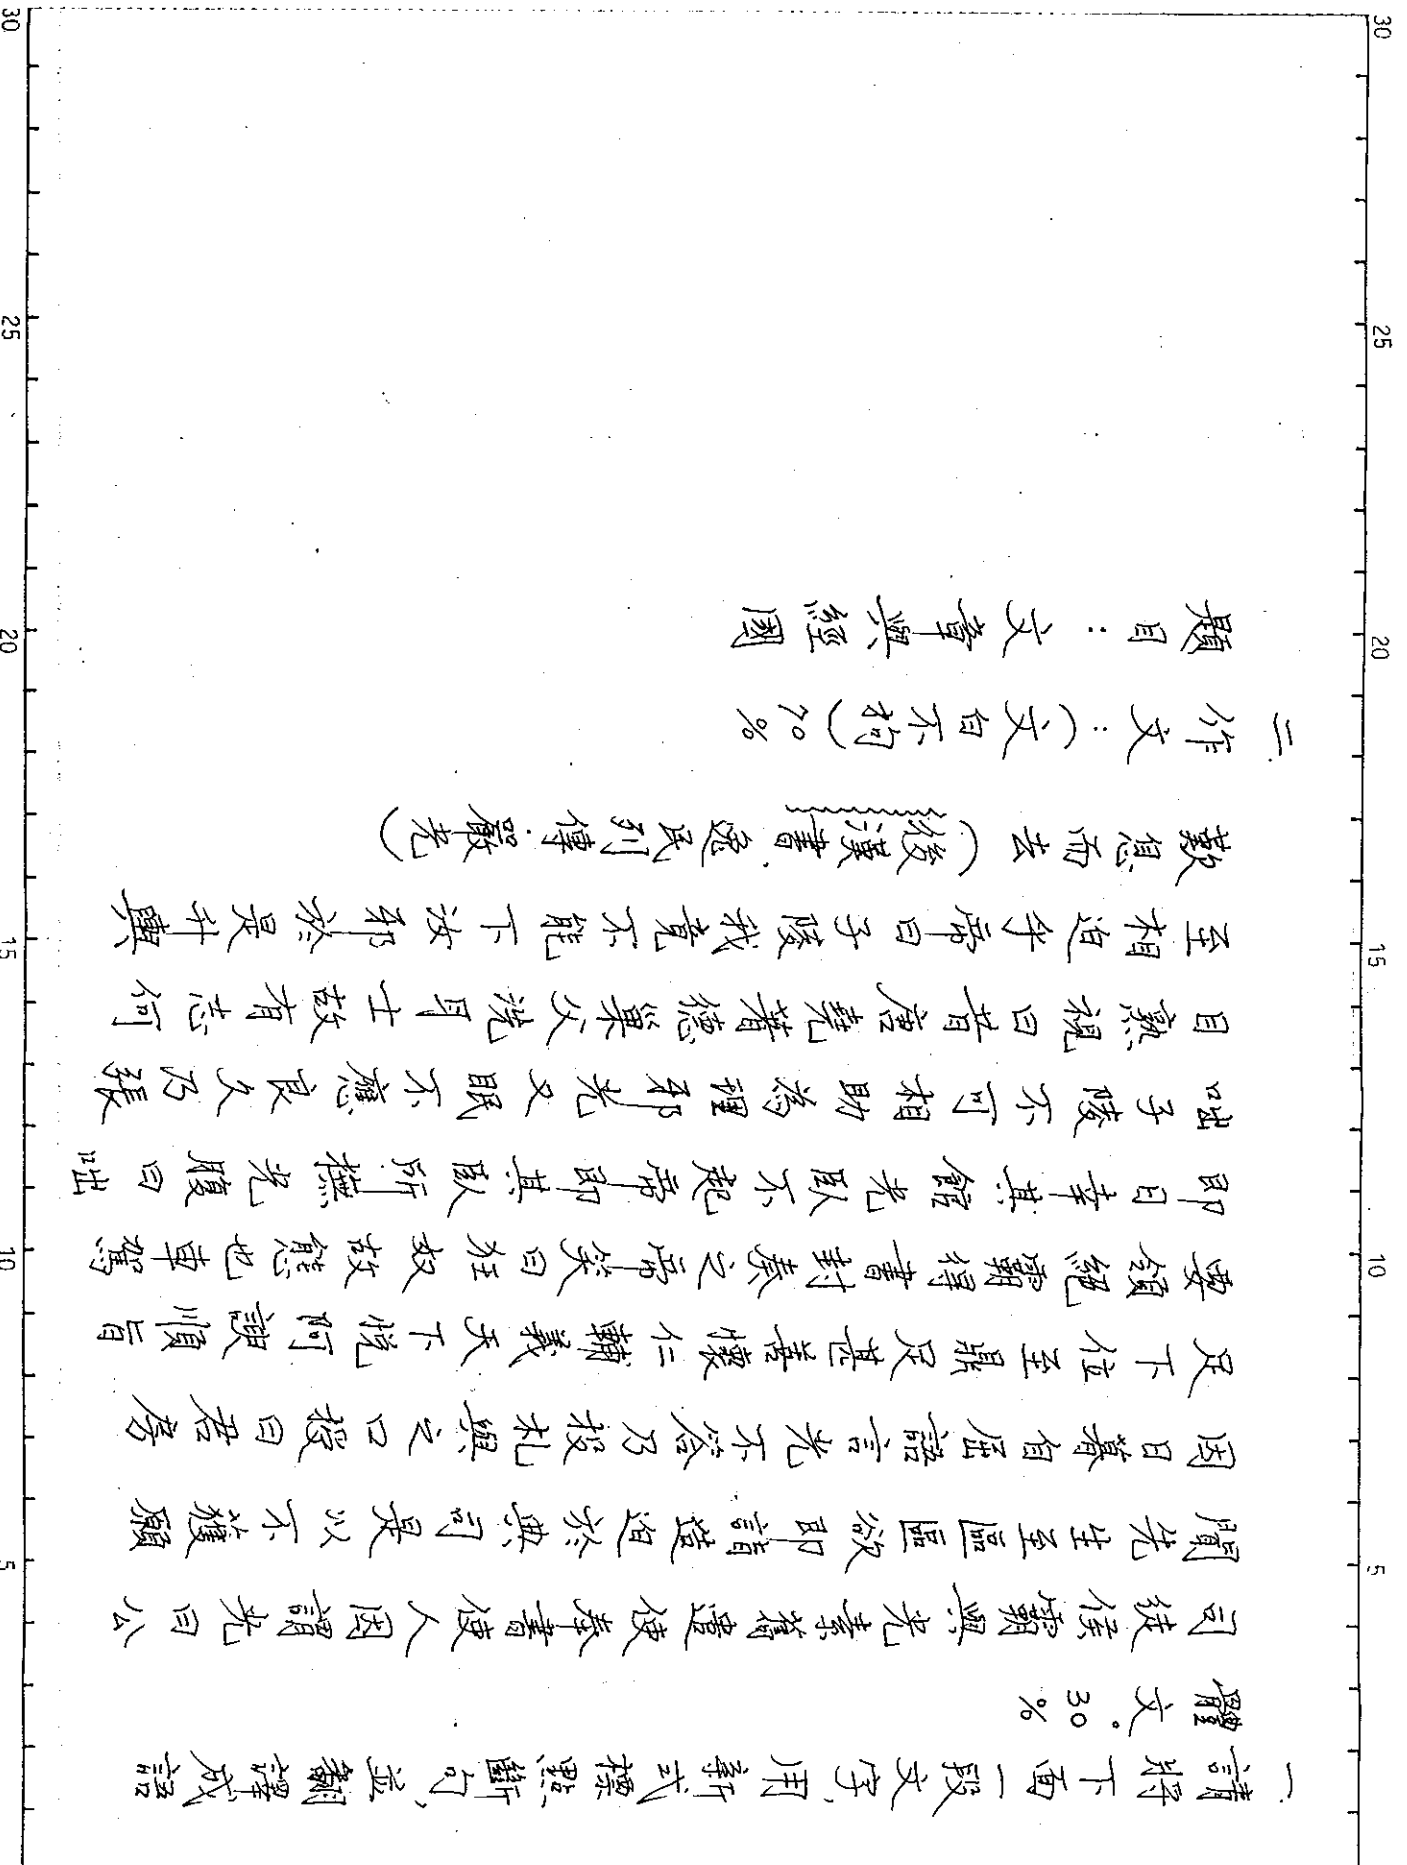 一、請將下面一段文字，用新式標點斷句，並翻譯成語
體文。30%
司徒侯霸與光素舊遣使奉書使人因謂光曰公
聞先生至區區欲即詣造迫於典司是以不獲願
因日暮自屈語言光不答乃投札與之口授曰君房
足下位至鼎足甚善懷仁輔義天下悅阿諛順旨
要領絕霸得書封奏之帝笑曰狂奴故態也車駕
即日幸其館光臥不起帝即其臥所撫光腹曰咄
咄子陵不可相助為理邪光又眠不應良久乃張
目熟視曰昔唐堯著德巢父洗耳士故有志何
至相迫乎帝曰子陵我竟不能下汝邪於是升輿
歎息而去（後漢書．逸民列傳．嚴光）
二、作文：（文白不拘）70%
題目：文章與經國
30
25
20
15
10
5
30
25
20
15
10
5